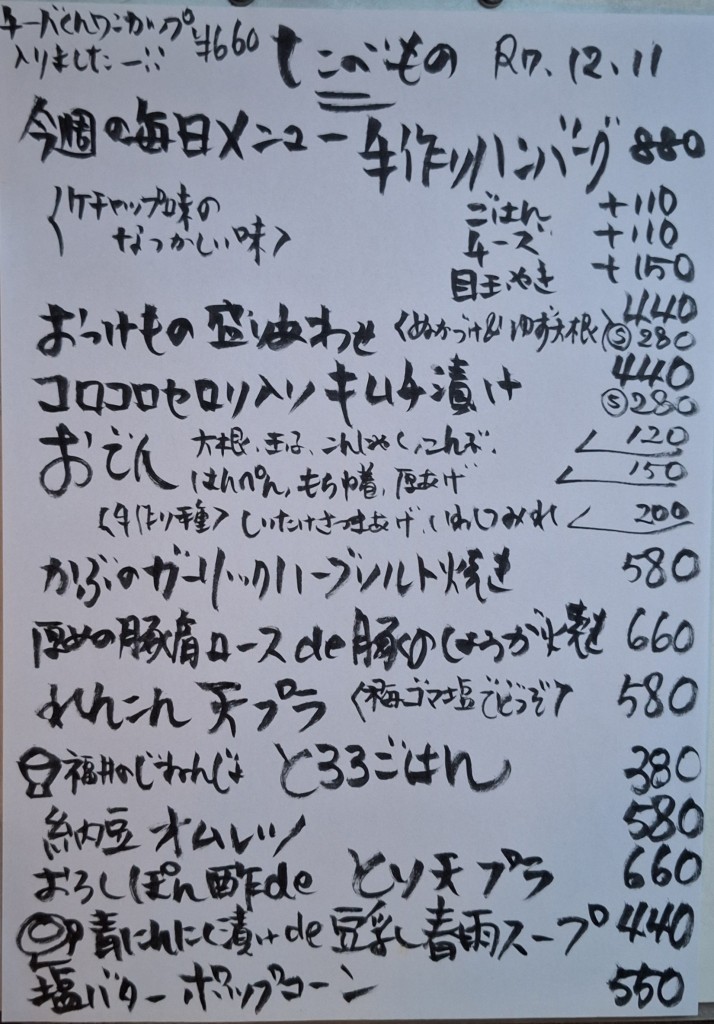 チーバくんワンカップ ¥660
入りました―!!
たべもの R7.12.11
今週の毎日メニュー 手作りハンバーグ 880
〈ケチャップ味の
なつかしい味〉
ごはん +110
チーズ +110
目玉やき +150
おつけもの盛りあわせ〈ぬかづけ&ゆず大根〉440
Ⓢ280
コロコロセロリ入りキムチ漬け 440
Ⓢ280
おでん 大根、玉子、こんにゃく、こんぶ、 120
はんぺん、もち巾着、厚あげ 150
〈手作り種〉しいたけさつまあげ、いわしつみれ 200
かぶのガーリックハーブソルト焼き 580
厚めの豚肩ロースde豚のしょうが焼き 660
れんこん天プラ〈梅ゴマ塩でどうぞ〉 580
福井のじねんじょ とろろごはん 380
納豆オムレツ 580
おろしぽん酢de とり天プラ 660
青にんにく漬けde豆乳春雨スープ 440
塩バターポップコーン 550